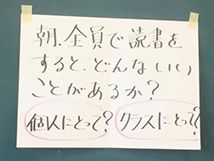 朝、全員で読書を
すると、どんないい
ことがあるか?
個人にとって? クラスにとって?